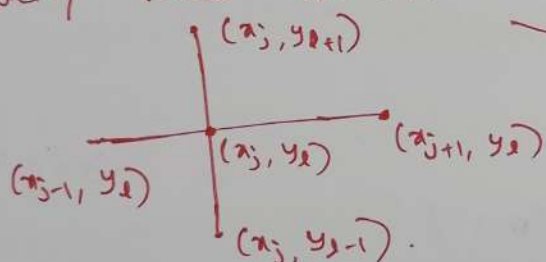 (x_j, y_{l+1})
(x_j, y_l)
(x_{j+1}, y_l)
(x_{j-1}, y_l)
(x_j, y_{l-1}).